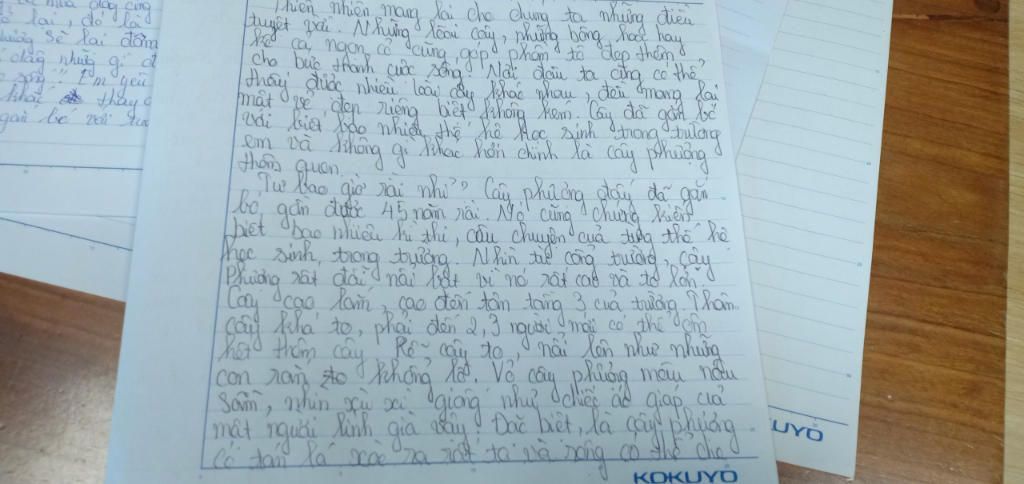 Thiên nhiên mang lại cho chúng ta những điều
tuyệt vời. Những loài cây, những bông hoa hay
kể cả ngọn cỏ cũng góp phần tô đẹp thêm
cho bức tranh cuộc sống. Nơi đâu ta cũng có thể
thấy được nhiều loài cây khác nhau, đều mang lại
một vẻ đẹp riêng biệt không kém. Cây đã gắn bó
với biết bao nhiêu thế hệ học sinh trong trường
em và không gì khác hơn chính là cây phượng
thân quen.
Từ bao giờ rồi nhỉ? Cây phượng đấy đã gắn
bó gần được 45 năm rồi. Nó cũng chứng kiến
biết bao nhiêu kì thi, câu chuyện của từng thế hệ
học sinh trong trường. Nhìn từ cổng trường, cây
phượng rất đỗi nổi bật vì nó rất cao và to lớn.
Cây cao lắm, cao đến tận tầng 3 của trường. Thân
cây khá to, phải đến 2, 3 người mới có thể ôm
hết thân cây. Rễ cây to, nổi lên như những
con rắn khổng lồ. Vỏ cây phượng màu nâu
sẫm, nhìn xù xì giống như chiếc áo giáp của
một người lính già vậy. Đặc biệt, là cây phượng
có tán lá xòe ra rất to và rộng có thể che
KOKUYO
UYO